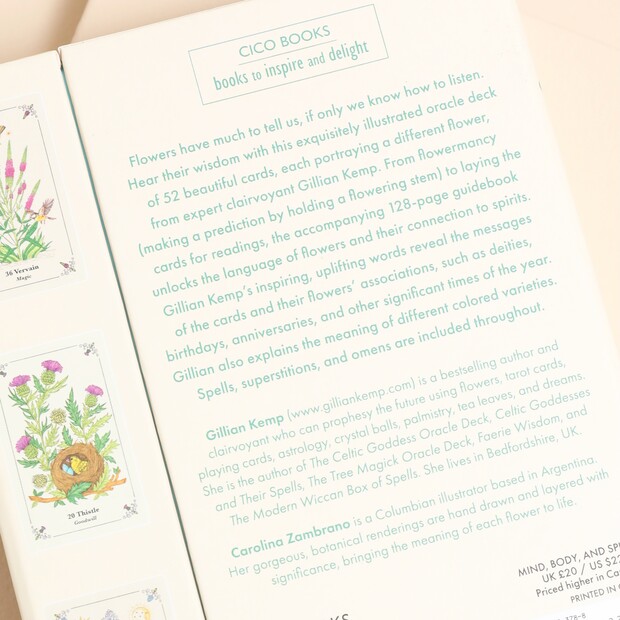 CICO BOOKS
books to inspire and delight
Flowers have much to tell us, if only we know how to listen.
Hear their wisdom with this exquisitely illustrated oracle deck
of 52 beautiful cards, each portraying a different flower,
from expert clairvoyant Gillian Kemp. From flowermancy
(making a prediction by holding a flowering stem) to laying the
cards for readings, the accompanying 128-page guidebook
unlocks the language of flowers and their connection to spirits.
Gillian Kemp's inspiring, uplifting words reveal the messages
of the cards and their flowers' associations, such as deities,
birthdays, anniversaries, and other significant times of the year.
Gillian also explains the meaning of different colored varieties.
Spells, superstitions, and omens are included throughout.
Gillian Kemp (www.gilliankemp.com) is a bestselling author and
clairvoyant who can prophesy the future using flowers, tarot cards,
playing cards, astrology, crystal balls, palmistry, tea leaves, and dreams.
She is the author of The Celtic Goddess Oracle Deck, Celtic Goddesses
and Their Spells, The Tree Magick Oracle Deck, Faerie Wisdom, and
The Modern Wiccan Box of Spells. She lives in Bedfordshire, UK.
Carolina Zambrano is a Columbian illustrator based in Argentina.
Her gorgeous, botanical renderings are hand drawn and layered with
significance, bringing the meaning of each flower to life.
MIND, BODY, AND SP
UK £20 / US $2
Priced higher in Ca
PRINTED IN
378-8
36 Vervain
Magic
20 Thistle
Goodwill